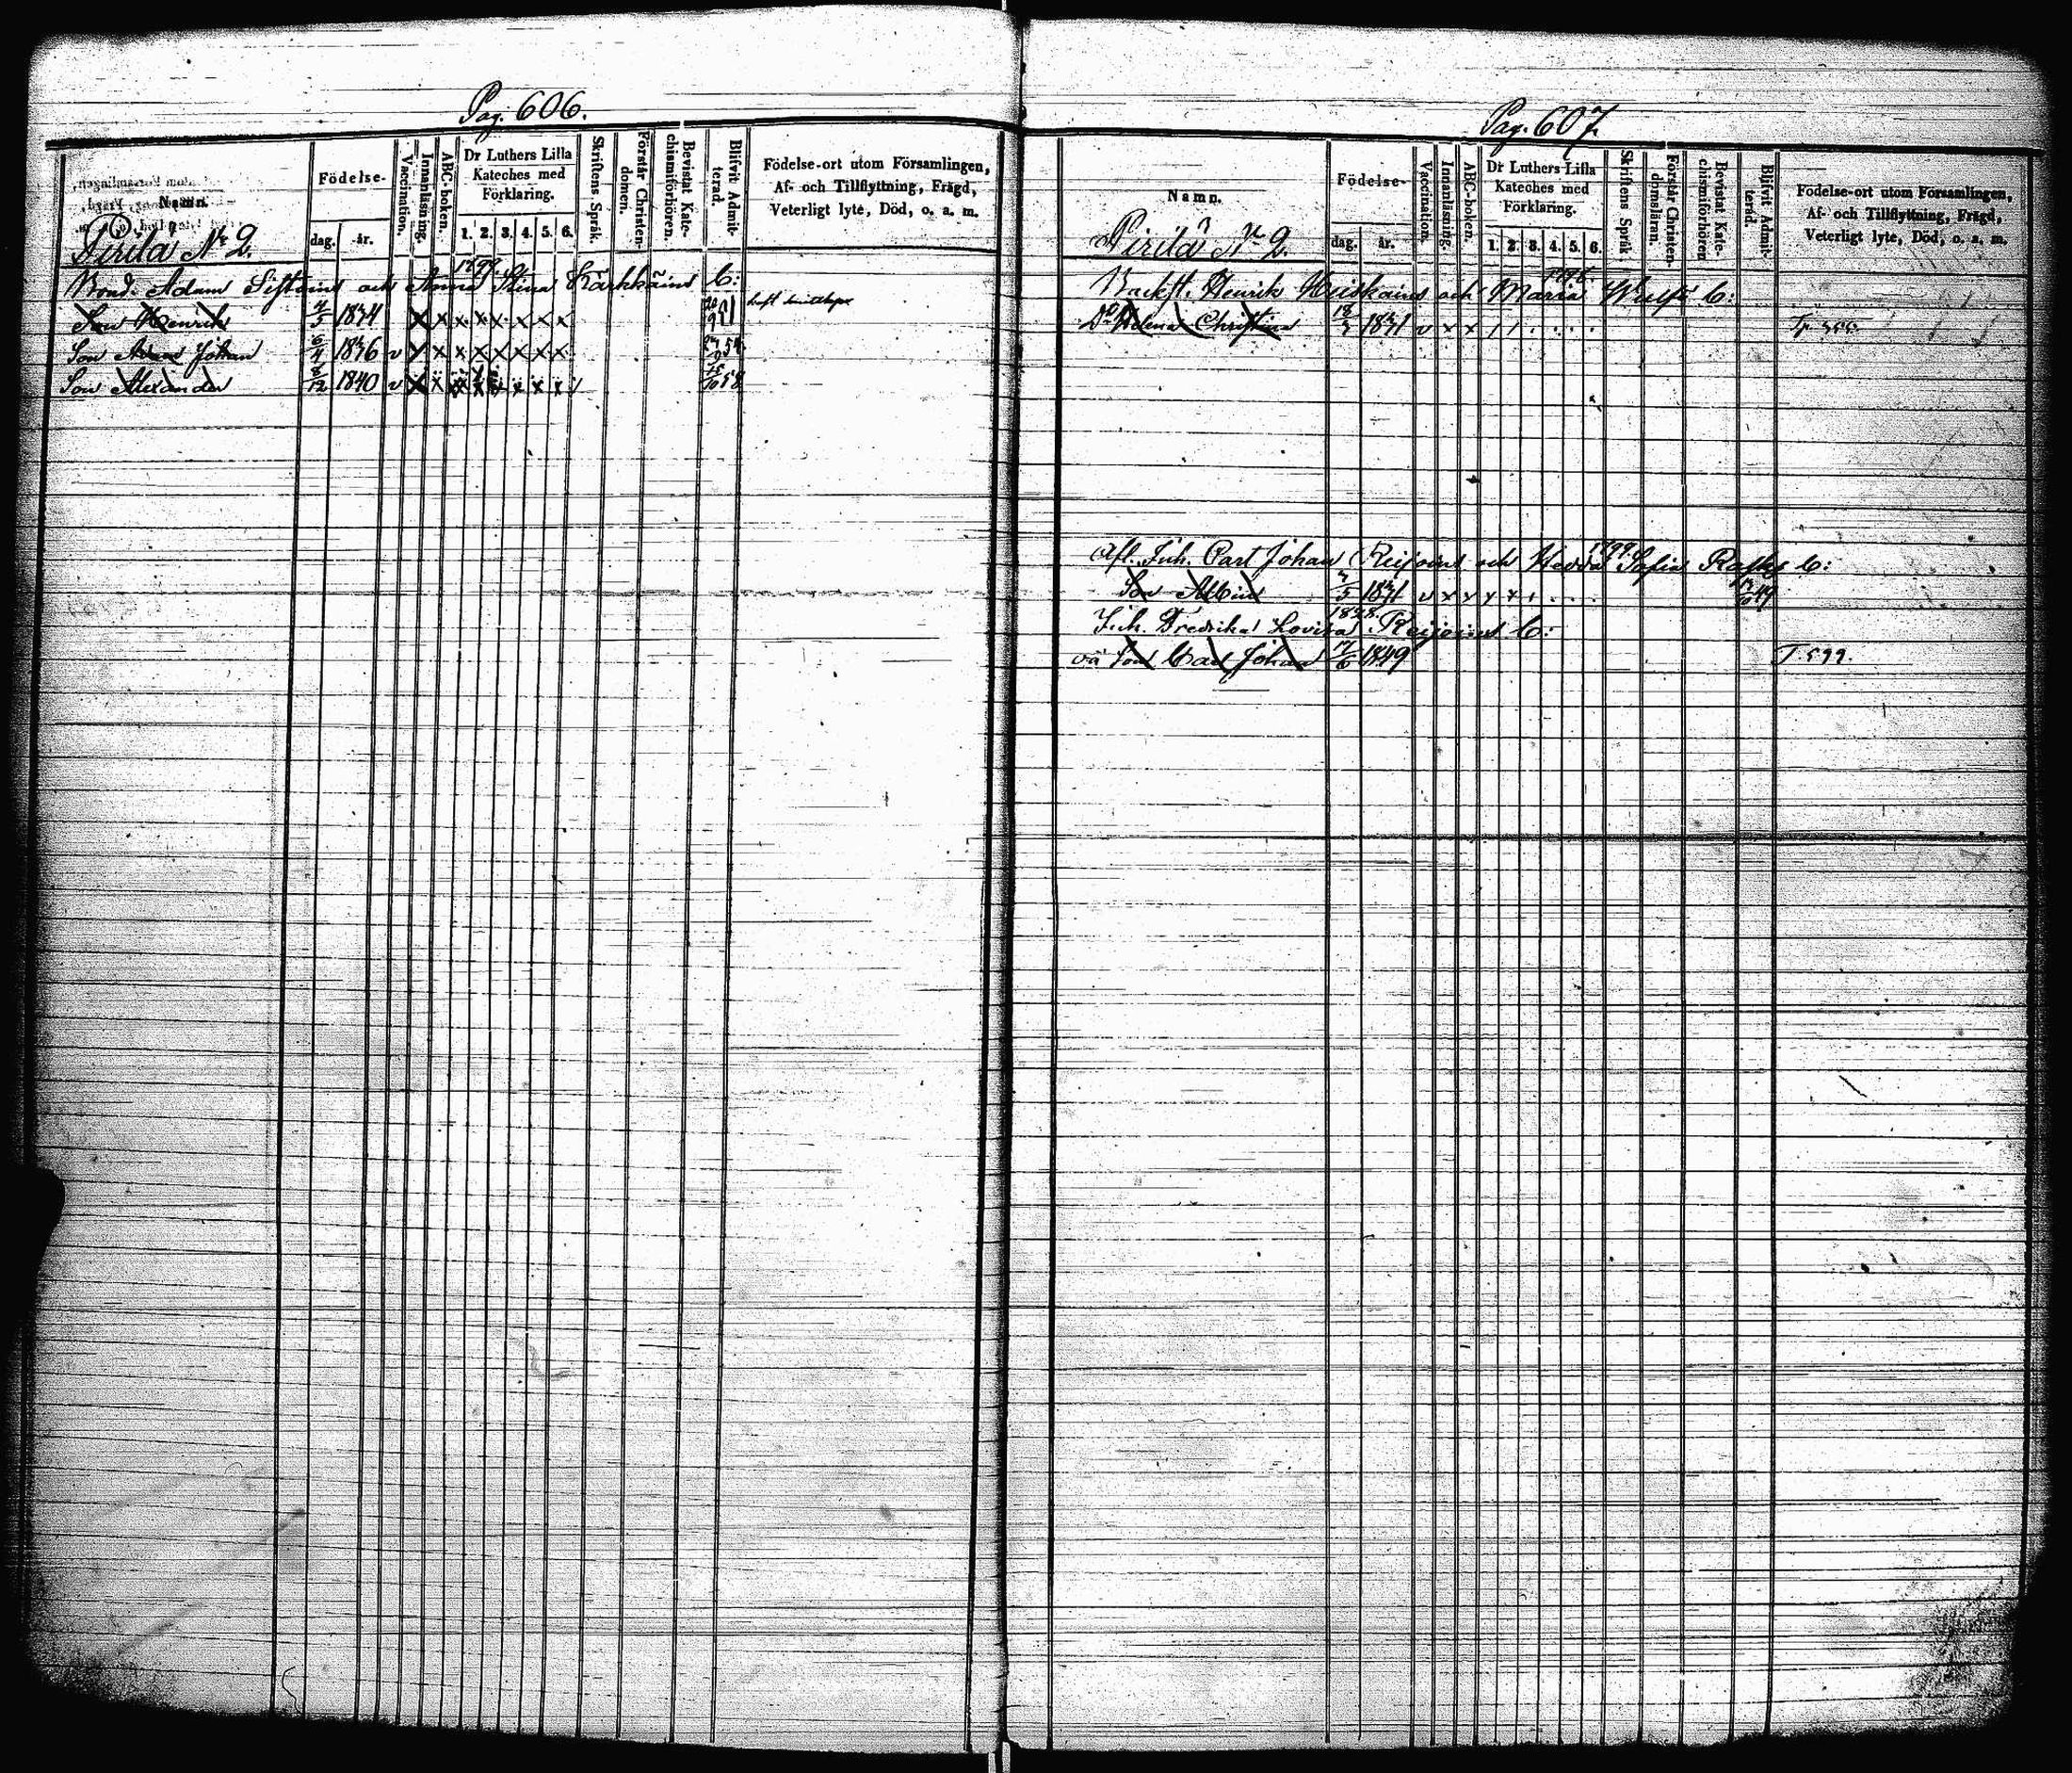 Pag. 606.
Namn.
Födelse-
dag. år.
Vaccination.
Innanläsning.
ABC-boken.
Dr Luthers Lilla
Kateches med
Förklaring.
1. 2. 3. 4. 5. 6.
Skriftens Språk.
Förstår Christen-
domen.
Bevistat Kate-
chismiförhören.
Blifvit Admit-
terad.
Födelse-ort utom Församlingen,
Af- och Tillflyttning, Frägd,
Veterligt lyte, Död, o. a. m.
Pirilä No 2.
1799.
Bond. Adam och Anna Stina Kärkkäins b:
Son Henrik 4/5 1834 x x x x x x x x 20/9 51
Son Adam Johan 6/4 1836 v x x x x x x x x 54.
Son Alexander 8/12 1840 v x x x x x x x 58
Pag. 607.
Namn.
Födelse-
dag. år.
Vaccination.
Innanläsning.
ABC-boken.
Dr Luthers Lilla
Kateches med
Förklaring.
1. 2. 3. 4. 5. 6.
Skriftens Språk
Förstår Christen-
domsläran.
Bevistat Kate-
chismiförhören
Blifvit Admit-
terad.
Födelse-ort utom Församlingen,
Af- och Tillflyttning, Frägd,
Veterligt lyte, Död, o. a. m.
Pirilä No 2.
Backst. Henrik Heiskains och Maria Wulff b:
Dr Helena Christina 18/7 1831 v x x
1799.
Afl. Inh. Carl Johan Reijoins och Hedda Sofia b:
Son Albin 7/5 1831 v x x x x 49
Inh. Fredrika Lovisa Reijoins b:
oä Son Carl Johan 17/6 1849 T. 599.